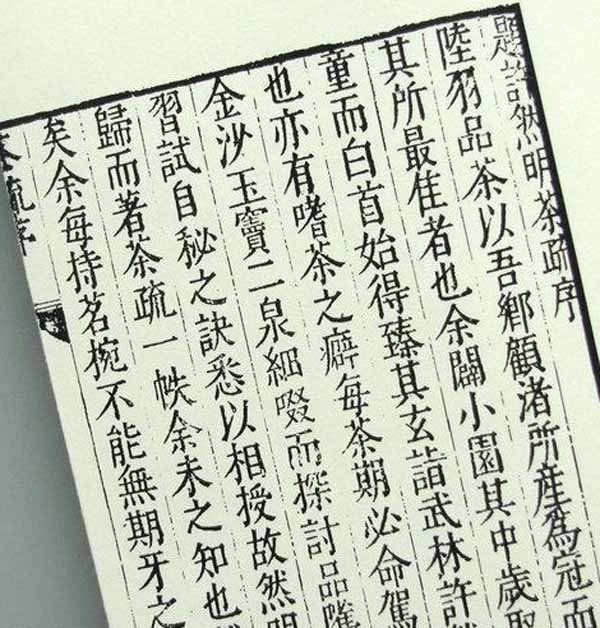 題許然明茶疏序
陸羽品茶以吾鄉顧渚所產爲冠而
其所最佳者也余闢小園其中歲取
童而白首始得臻其玄詣武林許然
也亦有嗜茶之癖每茶期必命駕
金沙玉竇二泉細啜而探討品隲
習試自秘之訣悉以相授故然明
歸而著茶疏一帙余未之知也
矣余每持茗椀不能無期牙之
茶疏序